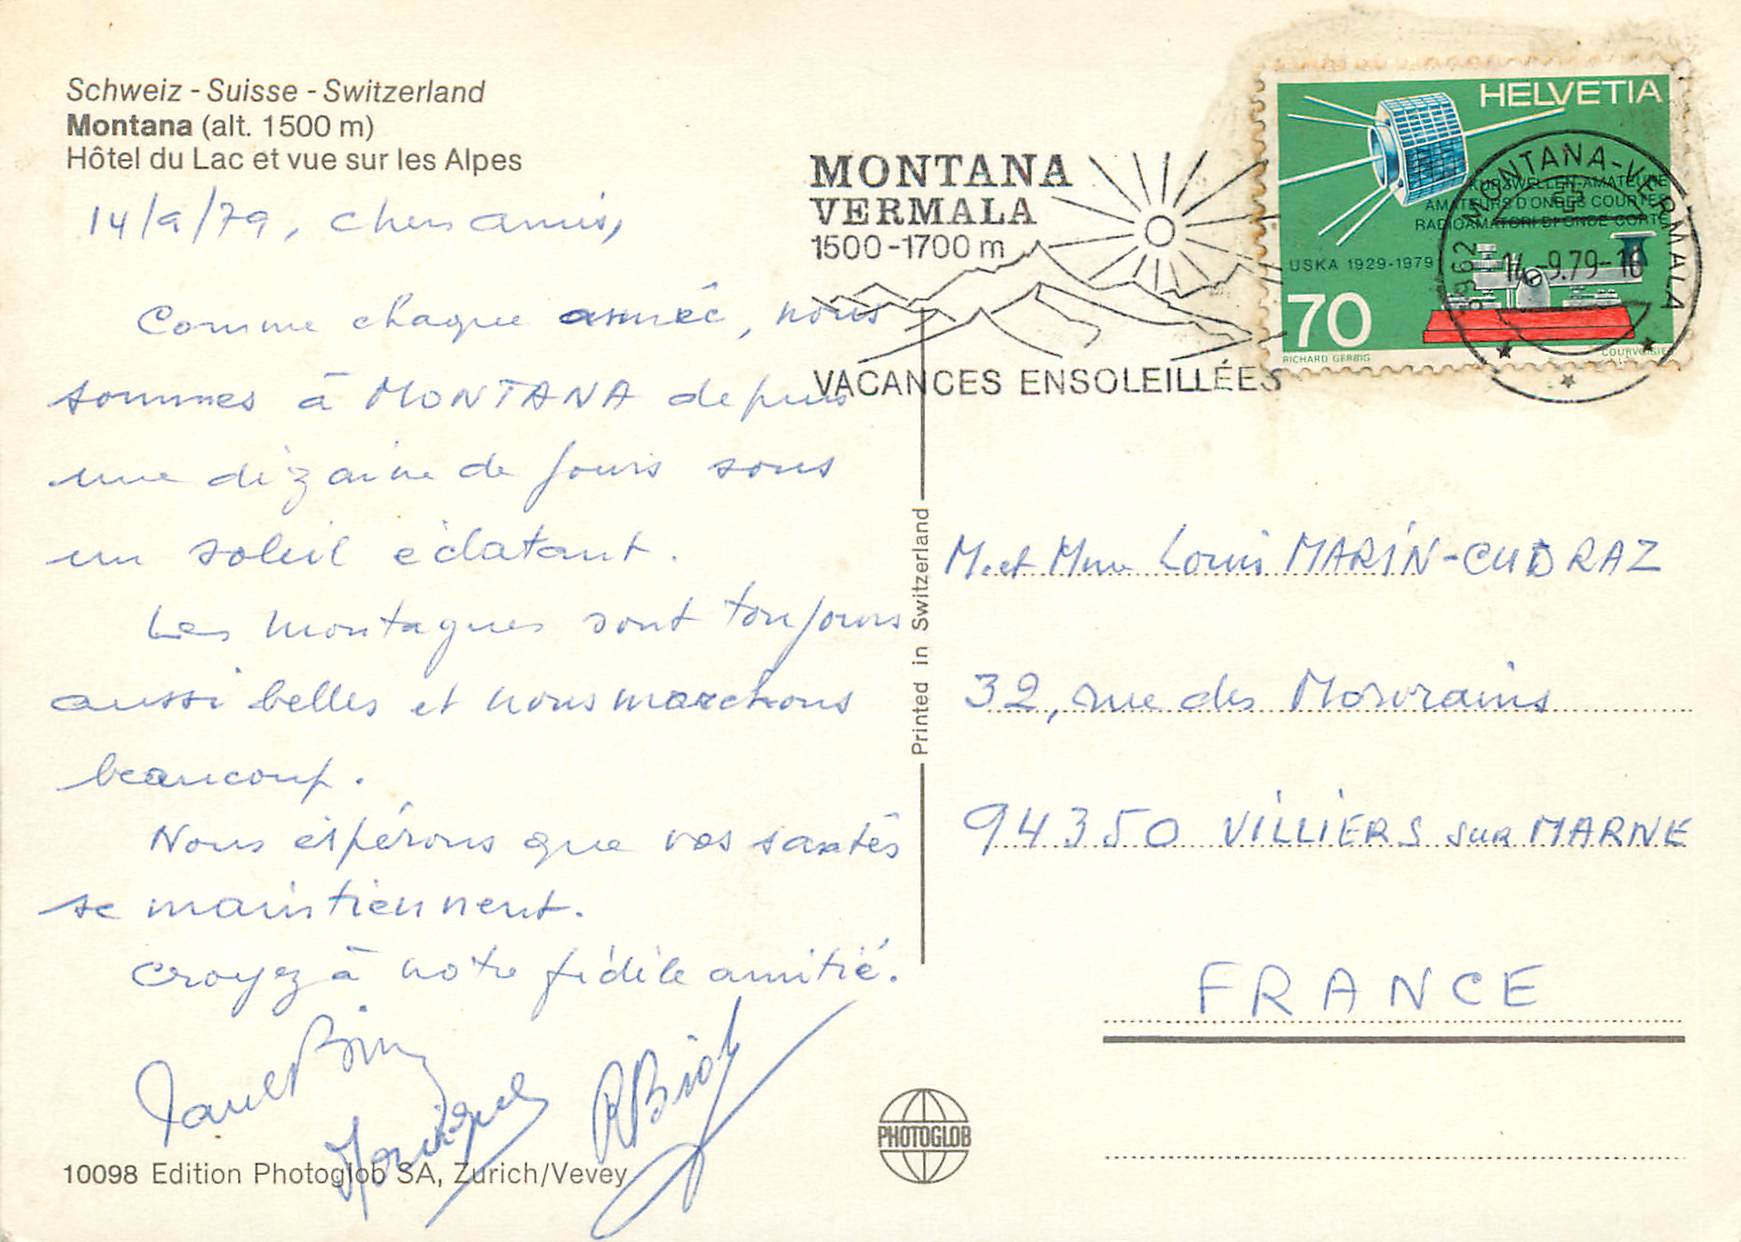 Schweiz - Suisse - Switzerland
Montana (alt. 1500 m)
Hôtel du Lac et vue sur les Alpes
14/9/79, chers amis,
Comme chaque année, nous
sommes à MONTANA depuis
une dizaine de jours sous
un soleil éclatant.
Les montagnes sont toujours
aussi belles et nous marchons
beaucoup.
Nous espérons que vos santés
se maintiennent.
Croyez à notre fidèle amitié.
10098 Edition Photoglob SA, Zurich/Vevey
Printed in Switzerland
PHOTOGLOB
MONTANA
VERMALA
1500-1700 m
VACANCES ENSOLEILLÉES
HELVETIA
KURZWELLEN-AMATEURE
AMATEURS D'ONDES COURTES
RADIOAMATORI DI ONDE CORTE
USKA 1929-1979
70
RICHARD GERBIG
COURVOISIER
3962 MONTANA-VERMALA
14.-9.79-18
M. et Mme Louis MARIN-CUDRAZ
32, rue des Morvrains
94350 VILLIERS SUR MARNE
FRANCE